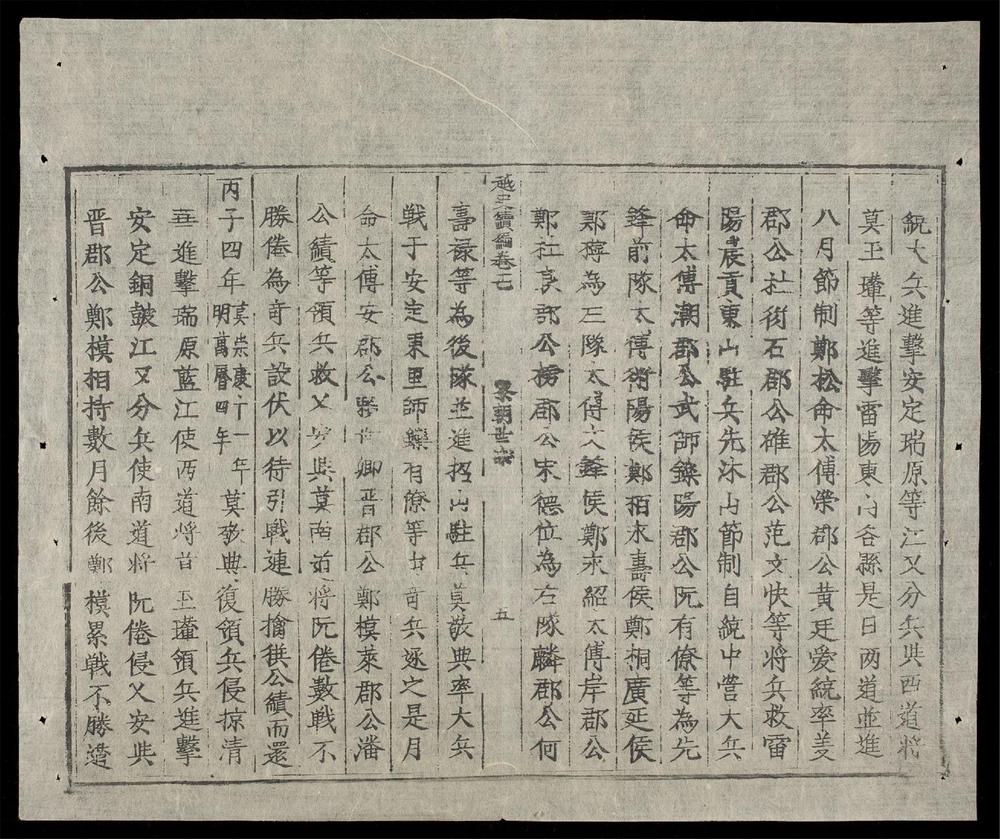 統大兵進擊安定瑞原等江又分兵與西道將
莫玉璡等進擊雷陽東山各縣是日两道並進
八月節制鄭松命太傅榮郡公黄廷愛統率姜
郡公杜街石郡公雄郡公范文快等將兵救雷
陽辰貢東山駐兵先沐山節制自統中營大兵
命太傅潮郡公武師鑅陽郡公阮有僚等為先
鋒前隊太傅衍陽侯鄭柏永壽侯鄭桐廣延侯
鄭 為三隊太傅文鋒侯鄭永紹太傅岸郡公
鄭杜 郡公 郡公宋德位為右隊麟郡公何
越史續編卷之
黎朝世宗
五
壽禄等為後隊並進 山駐兵莫敬典率大兵
戦于安定東 師鑅有僚等 竒兵逐之是月
命太傅安郡公 世卿晋郡公鄭模萊郡公潘
公績等領兵救乂安與莫南道將阮倦數戦不
勝倦為竒兵設伏以待引戦連勝擒 公績而還
丙子四年莫崇康十一年明萬曆四年莫敬典復領兵侵掠清
華進擊瑞原藍江使西道將莫玉璡領兵進擊
安定銅皷江又分兵使南道將阮倦侵乂安與
晋郡公鄭模相持數月餘後鄭模累戦不勝遣